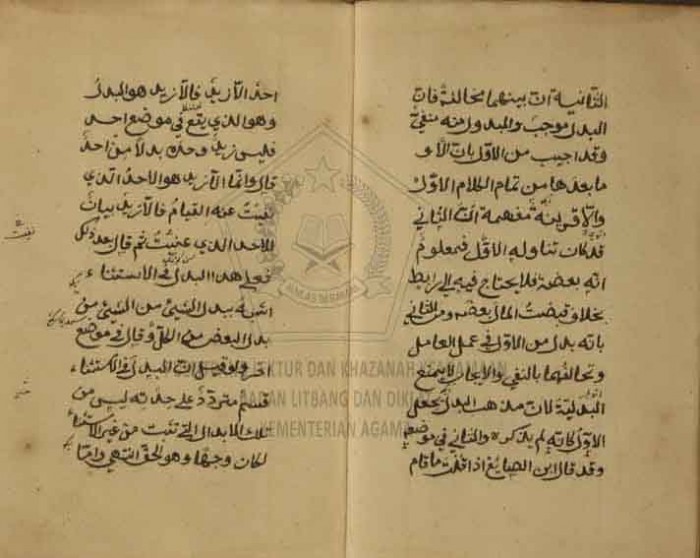 الثانية ان بينهما مخالفة فان
البدل موجب والمبدل منه منفي
وقد اجيب عن الاول بان الا و
ما بعدها من تمام الكلام الاول
والا قرينة مفهمة ان الثاني
قد كان تناوله الاول فمعلوم
انه بعضه فلا يحتاج فيه الى رابط
بخلاف قبضت المال بعضه وعن الثاني
بانه بدل من الاول في عمل العامل
وتخالفهما بالنفي والايجاب لا يمنع
البدلية لان مذهب البدل يجعل
الاول كانه لم يذكر والثاني في موضعه
وقد قال ابن الصايغ اذا قلت ما قام
احد الا زيد فالا زيد هو البدل
وهو الذي يقع في موضع احد
فليس زيد وحده بدلا من احد
قال وانما الا زيد هو الاحد الذي
نفيت عنه القيام فالا زيد بيان
الاحد الذي عنيت ثم قال بعد ذلك
فعلى هذا البدل في الاستثناء
اشبه ببدل الشيئ من الشيئ من
بدل البعض من الكل وقال في موضع
اخر ولو قيل ان البدل في الاستثناء
قسم على حدته ليس من
تلك الابدال التي تثبت من غير الاستثناء
لكان وجها وهو الحق انتهى واما
LEKTUR DAN KHAZANAH KEAGAMAAN
BADAN LITBANG DAN DIKLAT
KEMENTERIAN AGAMA